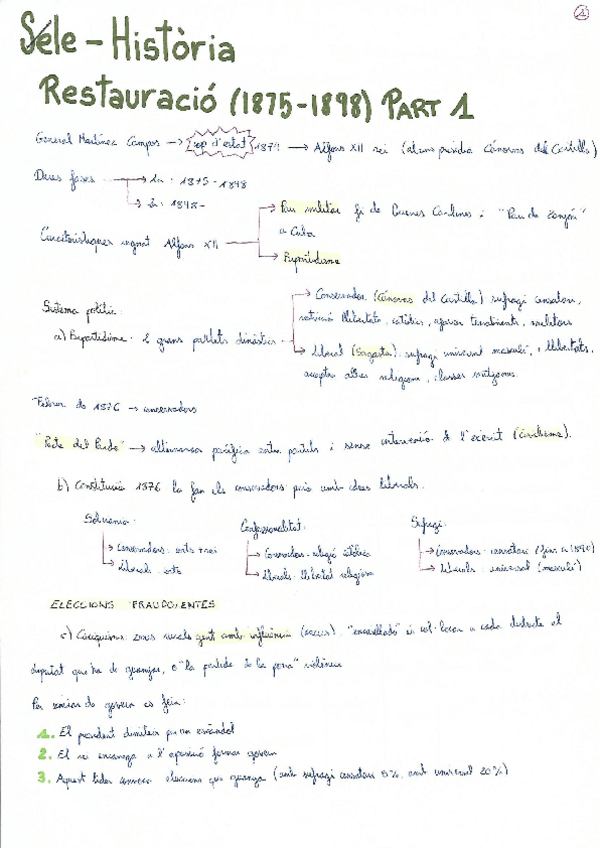 1
Sele - Història
Restauració (1875-1898) PART 1
General Martínez Campos → cop d'estat 1874 → Alfons XII rei (al seu Cánovas del Castillo)
Dues fases → 1a: 1875-1898
→ 2a: 1898-
Característiques regnat Alfons XII → Pau militar fi de Guerres Carlines i "Pau de Zanjón"
a Cuba
→ Bipartidisme
Sistema polític:
a) Bipartidisme: 2 grans partits dinàstics
→ Conservador (Cánovas del Castillo) sufragi censatari,
restricció llibertats, catòlics, terratinents, militars
→ Liberal (Sagasta): sufragi universal masculí, llibertats,
accepta altres religions, classes mitjanes
Febrer de 1876 → conservadors
"Pacte del Pardo" → alternança pacífica entre partits i sense intervenció de l'exèrcit (civilisme).
b) Constitució 1876 la fan els conservadors però amb idees liberals.
Sobirania:
→ Conservadors: corts + rei
→ Liberals: corts
Confessionalitat:
→ Conservadors: religió catòlica
→ Liberals: llibertat religiosa
Sufragi:
→ Conservadors: censatari (fins a 1890)
→ Liberals: universal (masculí)
ELECCIONS FRAUDOLENTES
c) Caciquisme: zones rurals gent amb influència, "encasillado" és col·locar a cada districte el
diputat que ha de guanyar, o "la partida de la porra" violència
Per canviar de govern es feia:
1. El president dimiteix per un escàndol
2. El rei encarrega a l'oposició formar govern
3. Aquest líder convoca eleccions que guanya (amb sufragi censatari 5%, amb universal 20%)